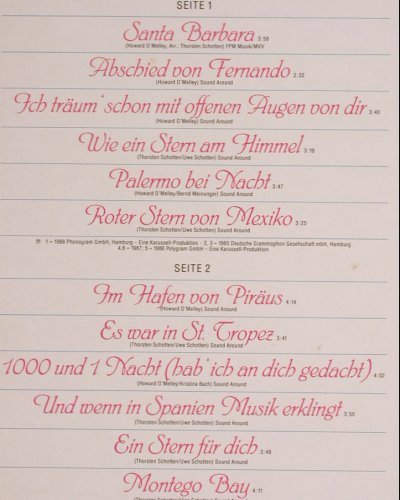 SEITE 1
Santa Barbara 3:58
(Howard O'Melley, Arr.: Thorsten Schotten) FPM Musik/MVV
Abschied von Fernando 2:32
(Howard O'Melley) Sound Around
Ich träum' schon mit offenen Augen von dir 3:40
(Howard O'Melley) Sound Around
Wie ein Stern am Himmel 3:19
(Thorsten Schotten/Uwe Schotten) Sound Around
Palermo bei Nacht 3:47
(Howard O'Melley/Bernd Meinunger) Sound Around
Roter Stern von Mexiko 3:25
(Thorsten Schotten/Uwe Schotten) Sound Around
℗ 1 – 1986 Phonogram GmbH, Hamburg – Eine Karussell-Produktion · 2, 3 – 1985 Deutsche Grammophon Gesellschaft mbH, Hamburg
4,6 – 1987; 5 – 1986 Polygram GmbH – Eine Karussell-Produktion
SEITE 2
Im Hafen von Piräus 4:14
(Howard O'Melley) Sound Around
Es war in St. Tropez 3:41
(Thorsten Schotten/Uwe Schotten) Sound Around
1000 und 1 Nacht (hab' ich an dich gedacht) 4:02
(Howard O'Melley/Kristina Bach) Sound Around
Und wenn in Spanien Musik erklingt 3:55
(Thorsten Schotten/Uwe Schotten) Sound Around
Ein Stern für dich 3:48
(Thorsten Schotten/Uwe Schotten) Sound Around
Montego Bay 4:11